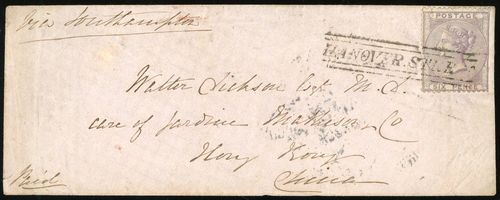 Via Southampton
POSTAGE
HANOVER ST. E.
SIX PENCE
Walter Dickson Esq M.D.
care of Jardine Matheson & Co
Hong Kong
China
Paid